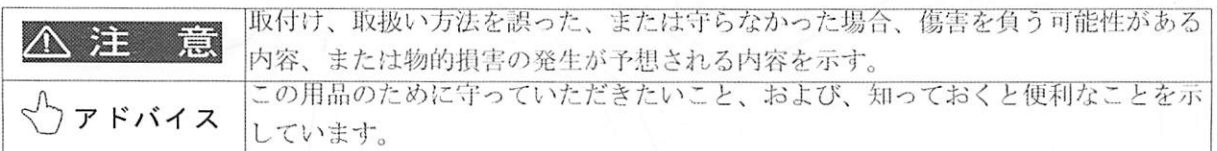 ⚠注　意
取付け、取扱い方法を誤った、または守らなかった場合、傷害を負う可能性がある
内容、または物的損害の発生が予想される内容を示す。
アドバイス
この用品のために守っていただきたいこと、および、知っておくと便利なことを示
しています。